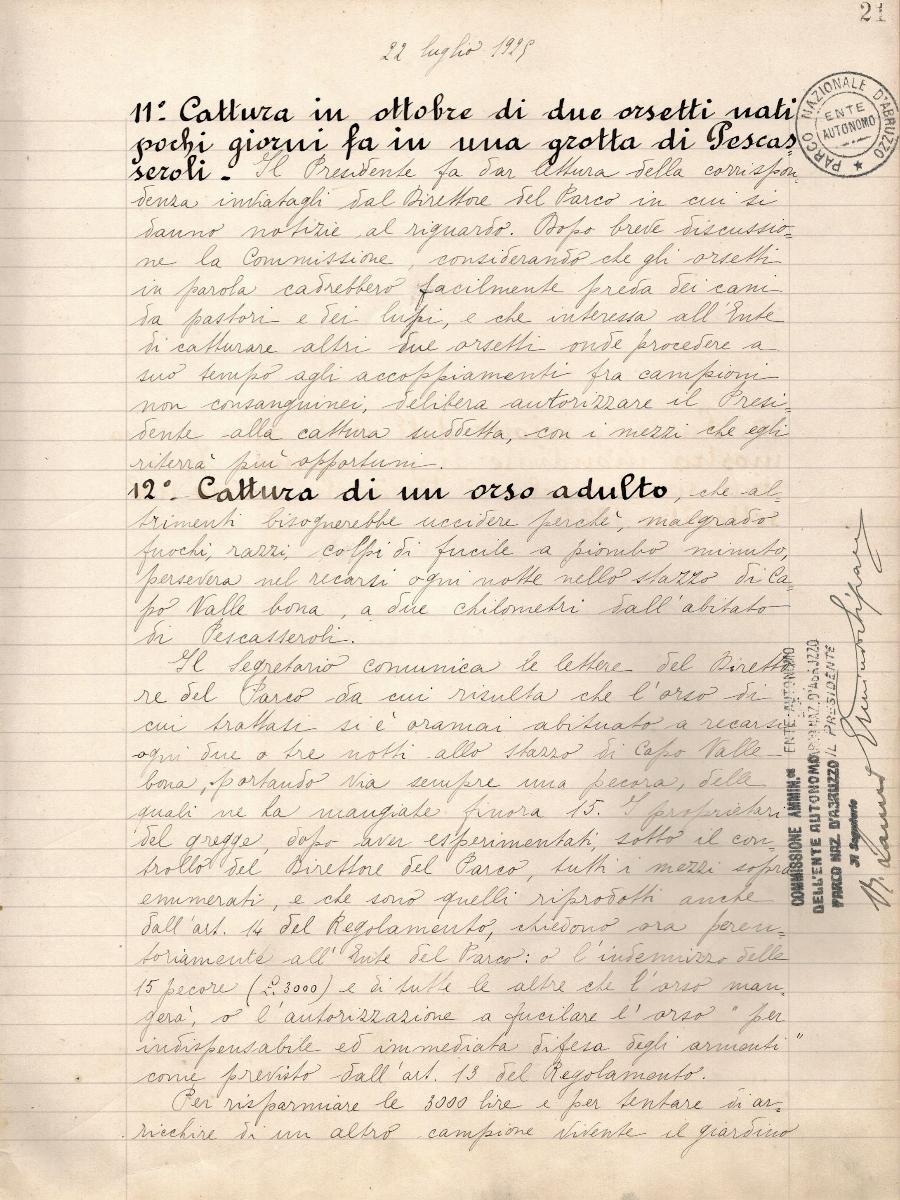 21
22 luglio 1925
PARCO NAZIONALE D'ABRUZZO
ENTE
AUTONOMO
11°- Cattura in ottobre di due orsetti nati
pochi giorni fa in una grotta di Pescas=
seroli - Il Presidente fa dar lettura della corrispon=
denza inviatagli dal Direttore del Parco in cui si
danno notizie al riguardo. Dopo breve discussio=
ne la Commissione, considerando che gli orsetti
in parola cadrebbero facilmente preda dei cani
da pastori e dei lupi, e che interessa all'Ente
di catturare altri due orsetti onde procedere a
suo tempo agli accoppiamenti fra campioni
non consanguinei, delibera autorizzare il Presi=
dente alla cattura suddetta, con i mezzi che egli
riterrà più opportuni.
12°- Cattura di un orso adulto, che al=
trimenti bisognerebbe uccidere perchè, malgrado
fuochi, razzi, colpi di fucile a piombo minuto,
persevera nel recarsi ogni notte nello stazzo di Ca=
po Valle bona, a due chilometri dall'abitato
di Pescasseroli.
Il Segretario comunica le lettere del Diretto
re del Parco da cui risulta che l'orso di
cui trattasi si è oramai abituato a recarsi
ogni due o tre notti allo stazzo di Capo Valle
bona, portando via sempre una pecora, delle
quali ne ha mangiate finora 15. I proprietari
del gregge, dopo aver esperimentati, sotto il con=
trollo del Direttore del Parco, tutti i mezzi sopra
enumerati, e che sono quelli riprodotti anche
dall'art. 14 del Regolamento, chiedono ora peren=
toriamente all'Ente del Parco: o l'indennizzo delle
15 pecore (£. 3000) e di tutte le altre che l'orso man=
gerà, o l'autorizzazione a fucilare l'orso "per
indispensabile ed immediata difesa degli armenti"
come previsto dall'art. 13 del Regolamento.
Per risparmiare le 3000 lire e per tentare di ar=
ricchire di un altro campione vivente il giardino
COMMISSIONE AMMIN.CE
DELL'ENTE AUTONOMO
PARCO NAZ. D'ABRUZZO
Il Segretario
ENTE AUTONOMO
PARCO NAZ. D'ABRUZZO
IL PRESIDENTE